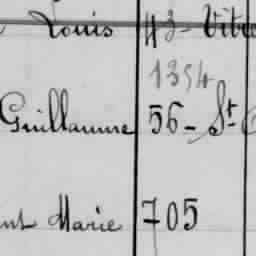 Louis 43 - Vitré
1354
Guillaume 56 - St
Marie 705